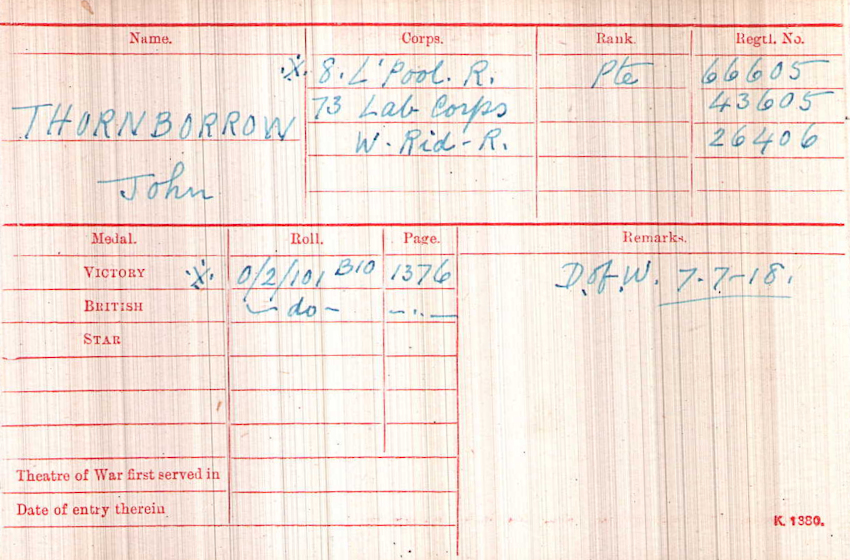 Name. Corps. Rank. Regtl. No.
.X. 8. L'Pool. R. Pte 66605
THORNBORROW 73 Lab Corps 43605
W. Rid - R. 26406
John
Medal. Roll. Page. Remarks.
VICTORY .X. O/2/101 B10 1376 D. of W. 7-7-18.
BRITISH - do - - " -
STAR
Theatre of War first served in
Date of entry therein
K. 1380.